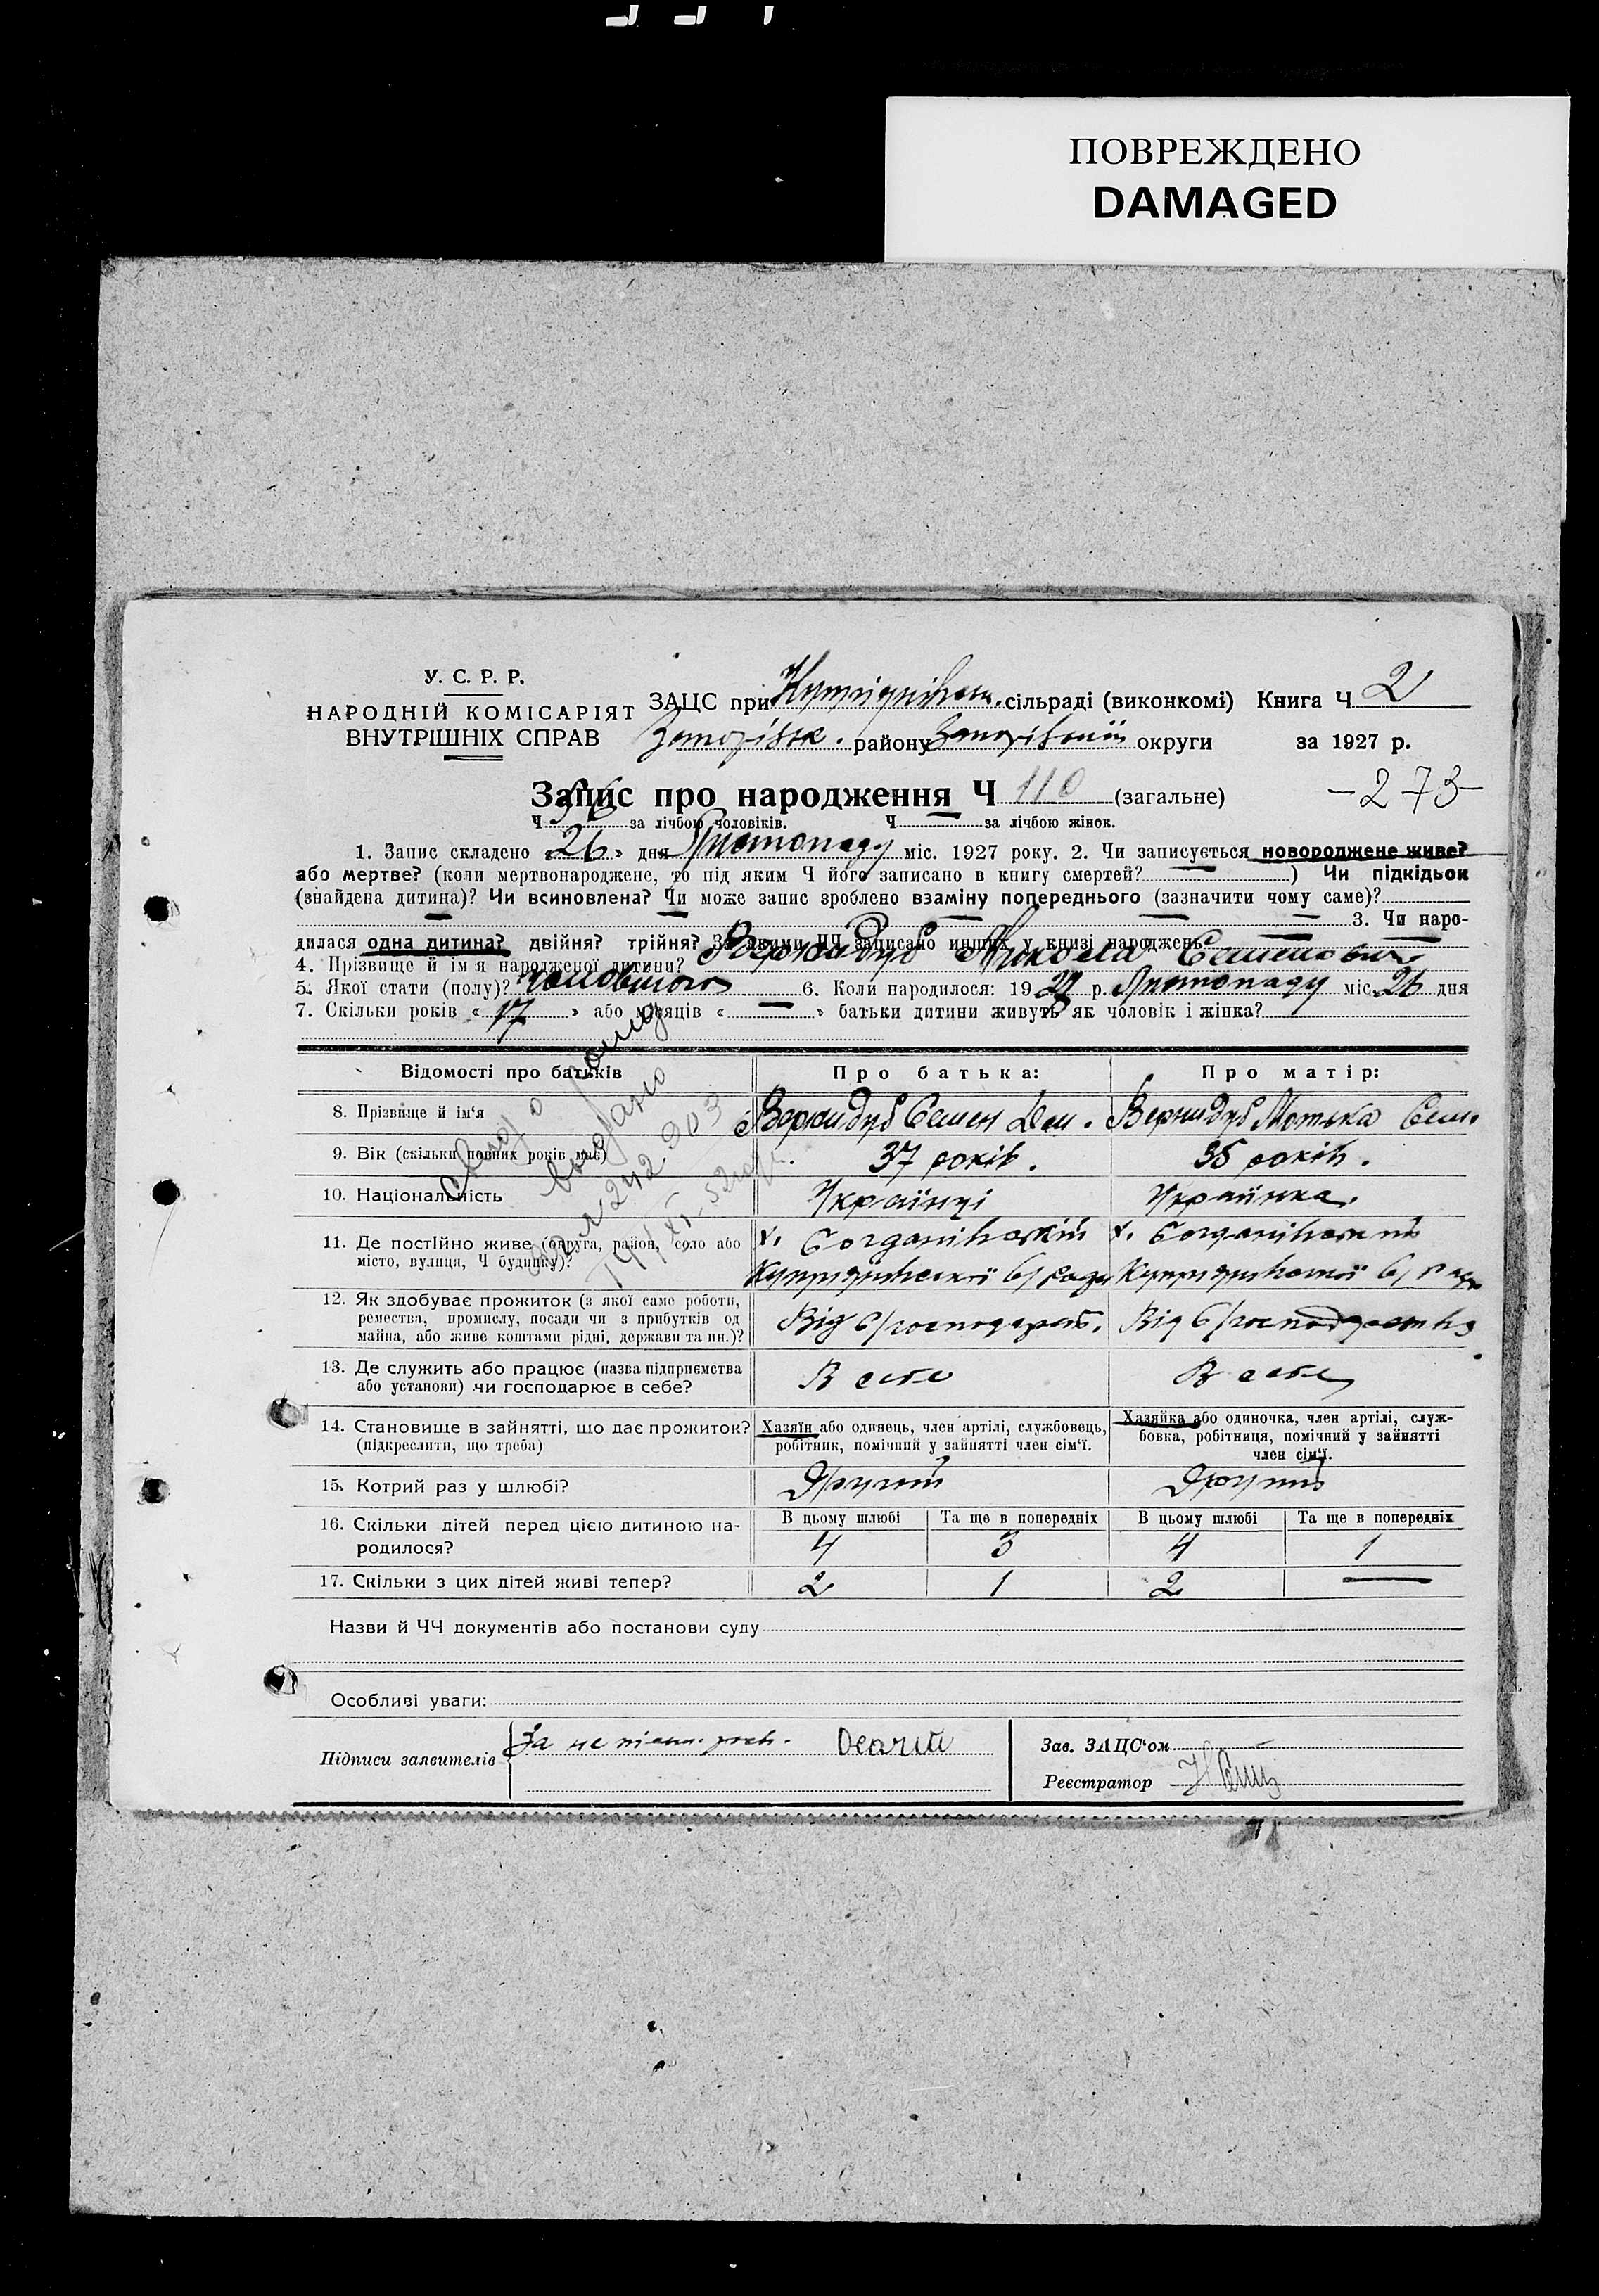 ПОВРЕЖДЕНО
DAMAGED
У. С. Р. Р.
НАРОДНІЙ КОМІСАРІЯТ
ВНУТРІШНІХ СПРАВ
ЗАЦС при сільраді (виконкомі) Книга Ч 2
району округи за 1927 р.
Запис про народження Ч 110 (загальне)
-273-
Ч за лічбою чоловіків. Ч — за лічбою жінок.
1. Запис складено «26» дня міс. 1927 року. 2. Чи записується новороджене живе?
або мертве? (коли мертвонароджене, то під яким Ч його записано в книгу смертей? — ) Чи підкідьок
(знайдена дитина)? Чи всиновлена? Чи може запис зроблено взаміну попереднього (зазначити чому саме)?
3. Чи наро-
дилася одна дитина? двійня? трійня? За якими ЧЧ записано инших у книзі народжень
4. Прізвище й ім'я народженої дитини? Вернидуб Микола Семенович
5. Якої стати (полу)? чоловічого 6. Коли народилося: 1927 р. міс. 26 дня
7. Скільки років «17» або місяців « — » батьки дитини живуть як чоловік і жінка?
Відомості про батьків Про батька: Про матір:
8. Прізвище й ім'я Вернидуб Семен Дем. Вернидуб Мотька Сем.
9. Вік (скільки повних років має) 37 років. 35 років.
10. Національність Українці Українка.
11. Де постійно живе (округа, район, село або
місто, вулиця, Ч будинку)?
х. х.
С/ради С/ради
12. Як здобуває прожиток (з якої саме роботи,
ремества, промислу, посади чи з прибутків од
майна, або живе коштами рідні, держави та ин.)?
Від С/господарст. Від С/господарства
13. Де служить або працює (назва підприємства
або установи) чи господарює в себе?
В себе В себе
14. Становище в зайнятті, що дає прожиток?
(підкреслити, що треба)
Хазяїн або одинець, член артілі, службовець,
робітник, помічний у зайнятті член сім'ї.
Хазяйка або одиночка, член артілі, служ-
бовка, робітниця, помічний у зайнятті
член сім'ї.
15. Котрий раз у шлюбі? Другий Другий
16. Скільки дітей перед цією дитиною на-
родилося?
В цьому шлюбі Та ще в попередніх В цьому шлюбі Та ще в попередніх
4 3 4 1
17. Скільки з цих дітей живі тепер? 2 1 2 —
Назви й ЧЧ документів або постанови суду
Особливі уваги:
Підписи заявителів За не письм. Осачий
Зав. ЗАЦС'ом
Реєстратор